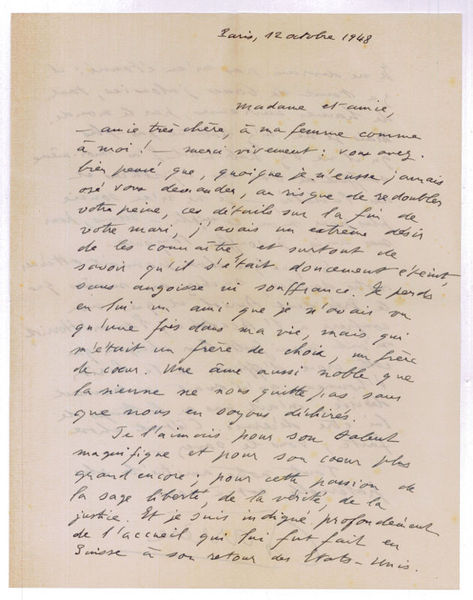 Paris, 12 octobre 1948
Madame et amie,
— amie très chère, à ma femme comme
à moi ! — merci vivement : vous avez
bien pensé que, quoique je n'eusse jamais
osé vous demander, au risque de redoubler
votre peine, ces détails sur la fin de
votre mari, j'avais un extrême désir
de les connaître, et surtout de
savoir qu'il s'était doucement éteint,
sans angoisse ni souffrance. Je perds
en lui un ami que je n'avais vu
qu'une fois dans ma vie, mais qui
m'était un frère de choix, un frère
de cœur. Une âme aussi noble que
la sienne ne nous quitte pas sans
que nous en soyons déchirés.
Je l'aimais pour son talent
magnifique et pour son cœur plus
grand encore, pour cette passion de
la sage liberté, de la vérité, de la
justice. Et je suis indigné profondément
de l'accueil qui lui fut fait en
Suisse à son retour des États-Unis.